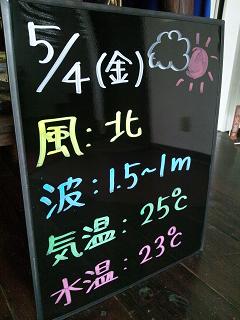 5/4(金)
風:北
波:1.5~1m
気温:25℃
水温:23℃